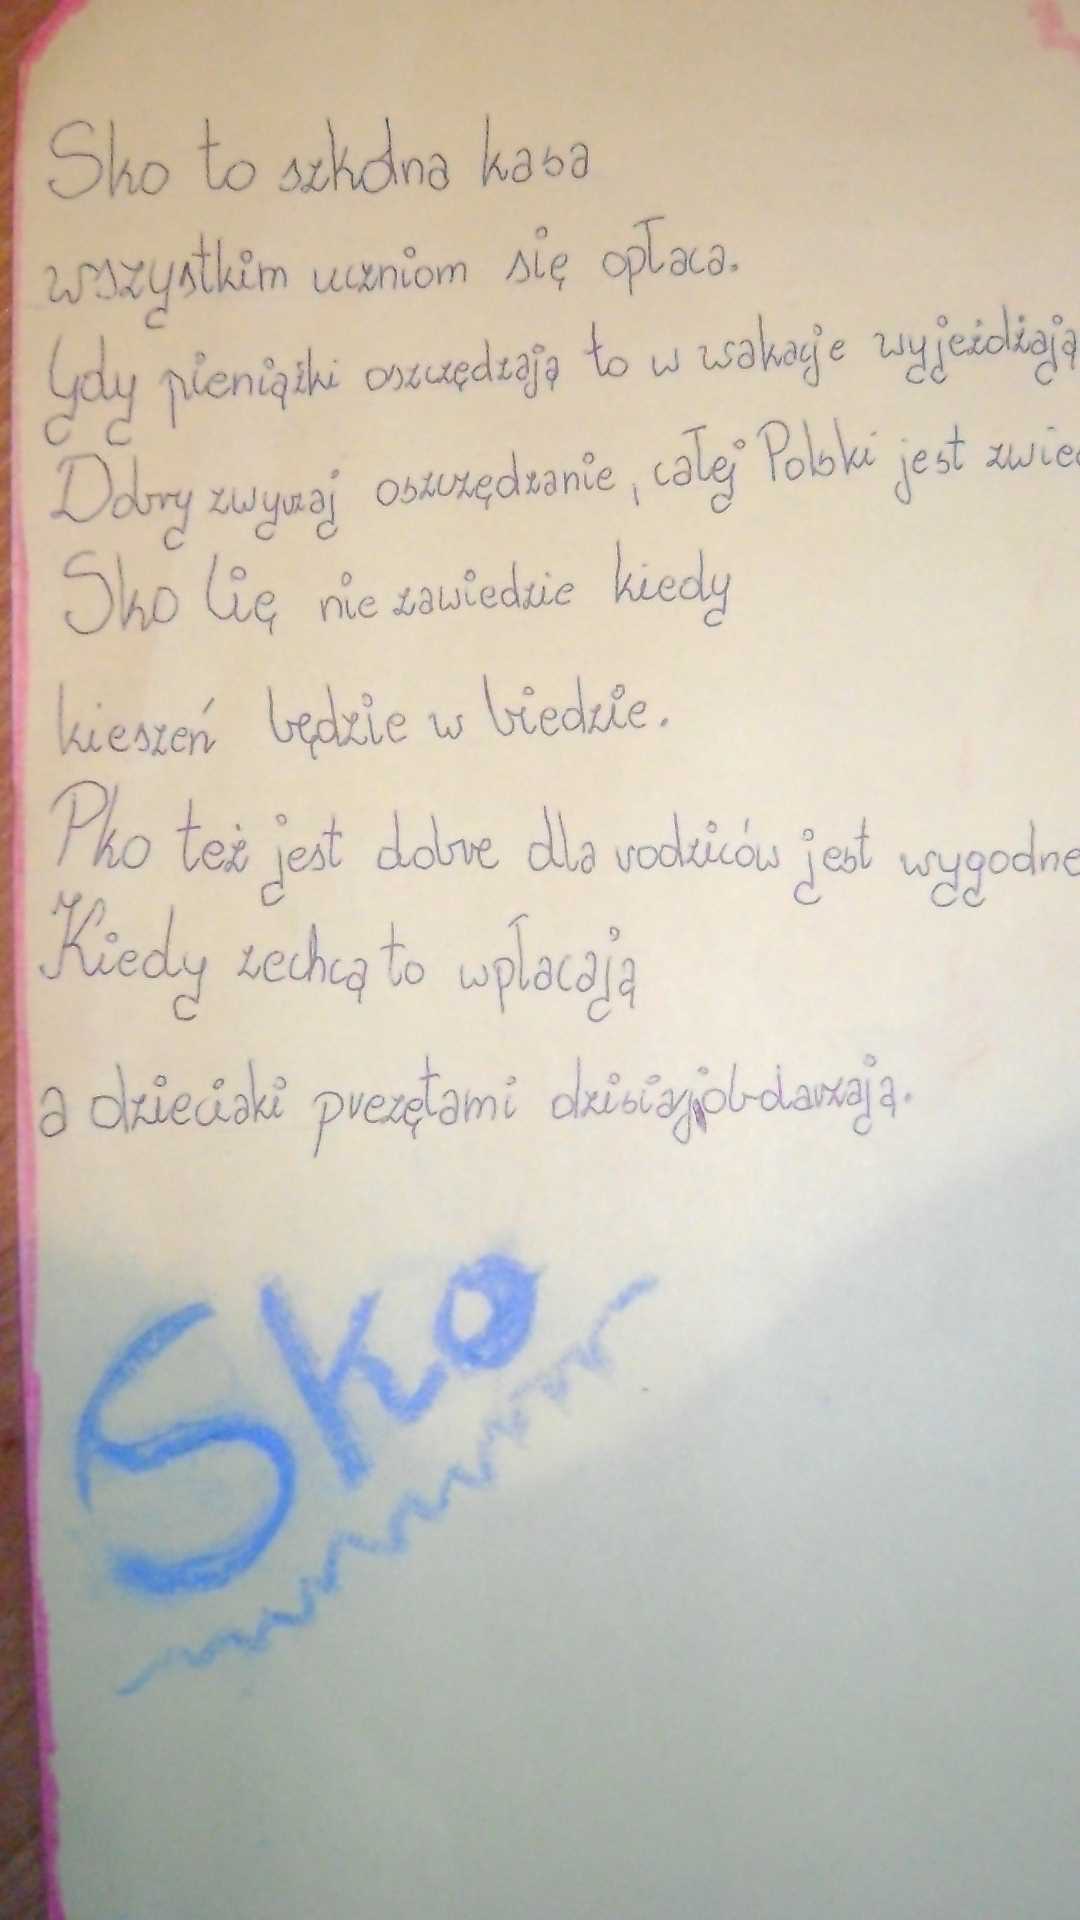 Sko to szkolna kasa
wszystkim uczniom się opłaca.
Gdy pieniążki oszczędzają to w wakacje wyjeżdżają
Dobry zwyczaj oszczędzanie, całej Polski jest zwie
Sko Cię nie zawiedzie kiedy
kieszeń będzie w biedzie.
Pko też jest dobre dla rodziców jest wygodne
Kiedy zechcą to wpłacają
a dzieciaki prezętami dzisiaj obdarzają.
Sko